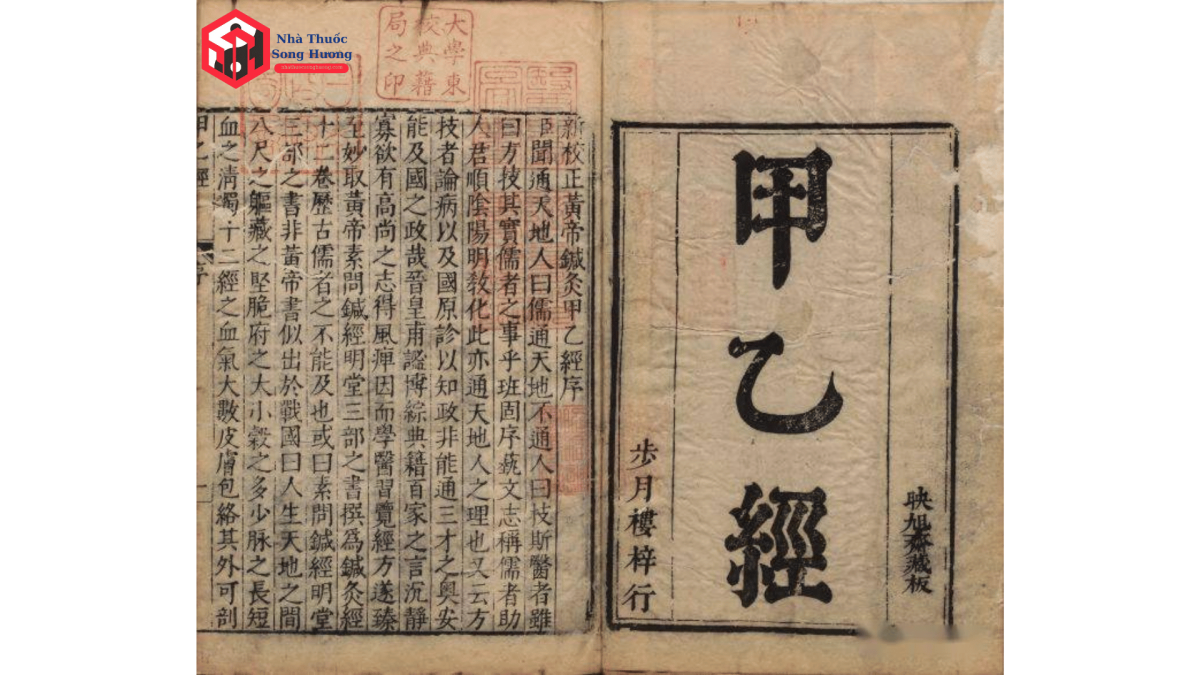 Nhà Thuốc
Song Hương
大學東
校典籍
局之印
映旭齋藏板
甲乙經
步月樓梓行
新校正黃帝鍼灸甲乙經序
臣聞通天地人曰儒通天地不通人曰技斯醫者雖
曰方技其實儒者之事乎班固序藝文志稱儒者助
人君順陰陽明教化此亦通天地人之理也又云方
技者論病以及國原診以知政非能通三才之奧安
能及國之政哉晉皇甫謐博綜典籍百家之言沉靜
寡欲有高尚之志得風痺因而學醫習覽經方遂臻
至妙取黃帝素問鍼經明堂三部之書撰為鍼灸經
十二卷歷古儒者之不能及也或曰素問鍼經明堂
三部之書非黃帝書似出於戰國曰人生天地之間
八尺之軀藏之堅脆府之大小穀之多少脉之長短
血之清濁十二經之血氣大數皮膚包絡其外可剖
甲乙經 序 一